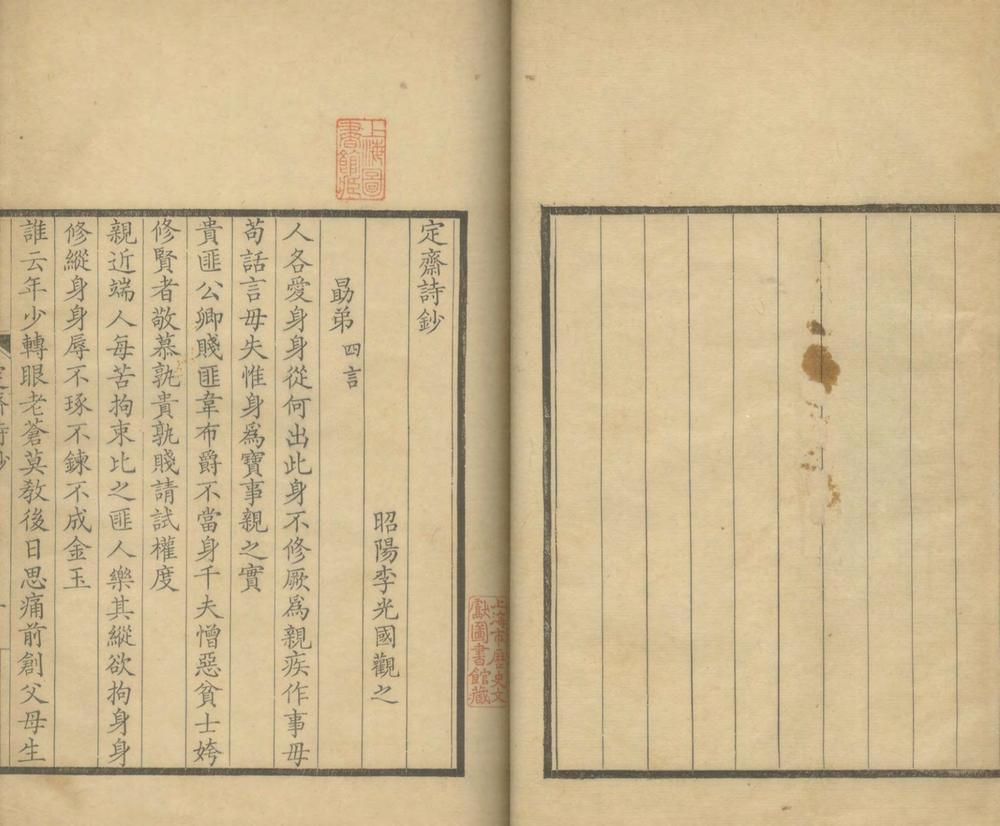 定齋詩鈔
昭陽李光國觀之
勗弟 四言
人各愛身身從何出此身不修厥爲親疾作事毋
苟話言毋失惟身爲寶事親之實
貴匪公卿賤匪韋布爵不當身千夫憎惡貧士姱
修賢者敬慕孰貴孰賤請試權度
親近端人每苦拘束比之匪人樂其縱欲拘身身
修縱身身辱不琢不鍊不成金玉
誰云年少轉眼老蒼莫敎後日思痛前創父母生
定齋詩鈔
上海圖
書館藏
上海市歷史文
獻圖書館藏